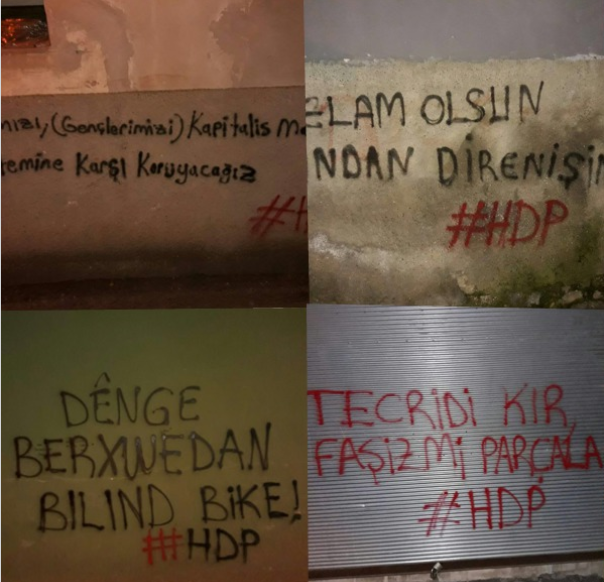 (Gençlerimizi) Kapitalis
Karşı Koruyacağız
#H
ELAM OLSUN
NDAN DİRENİŞİN
#HDP
DÊNGE
BERXWEDAN
BILIND BİKE!
#HDP
TECRİDİ KIR,
FAŞİZMİ PARÇALA
#HDP